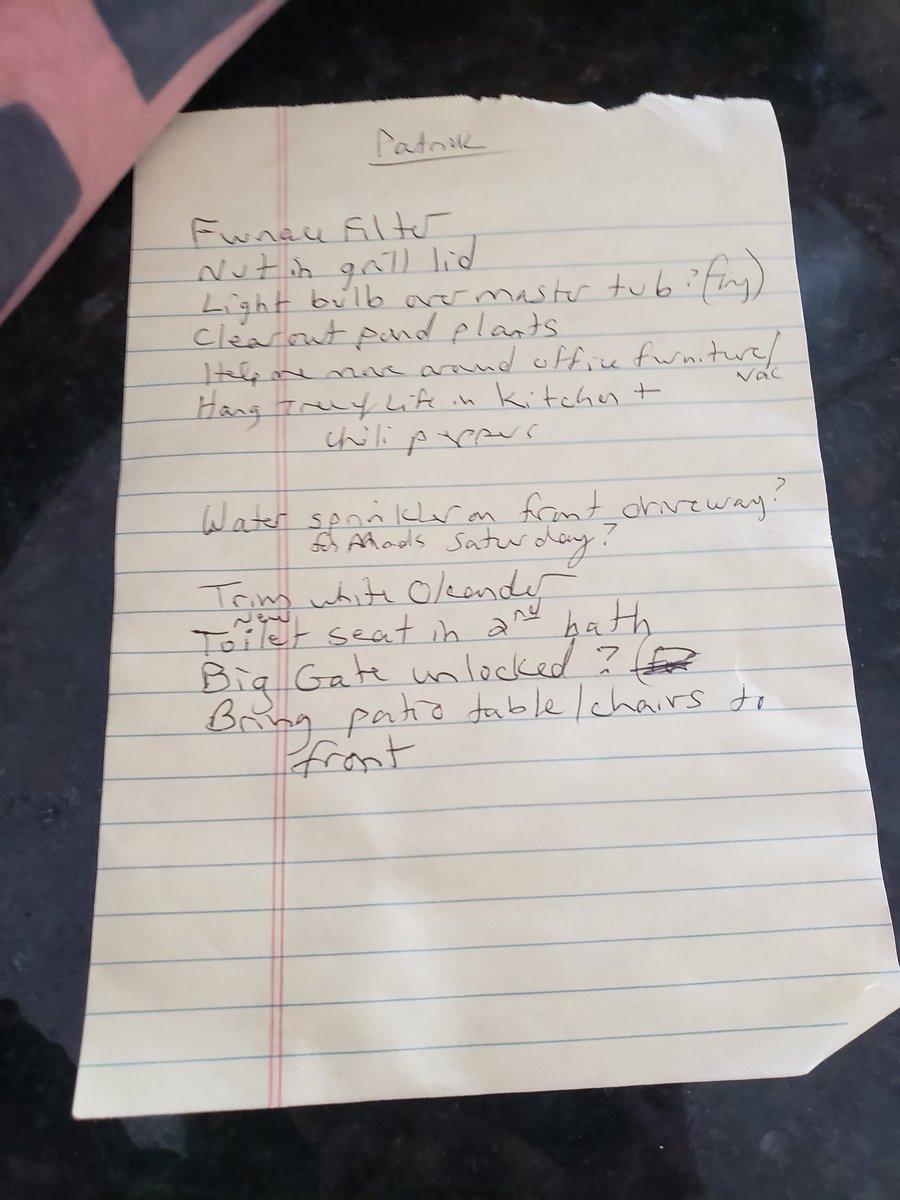 Patrick
Furnace Filter
Nut in grill lid
Light bulb over master tub? (
Clear out pond plants
Help me move around office furniture/
vac
Hang Life in kitchen +
chili peppers
Water sprinkler on front driveway?
for Saturday?
Trim white Oleander
New
Toilet seat in 2nd bath
Big Gate unlocked? (
Bring patio table/chairs to
front